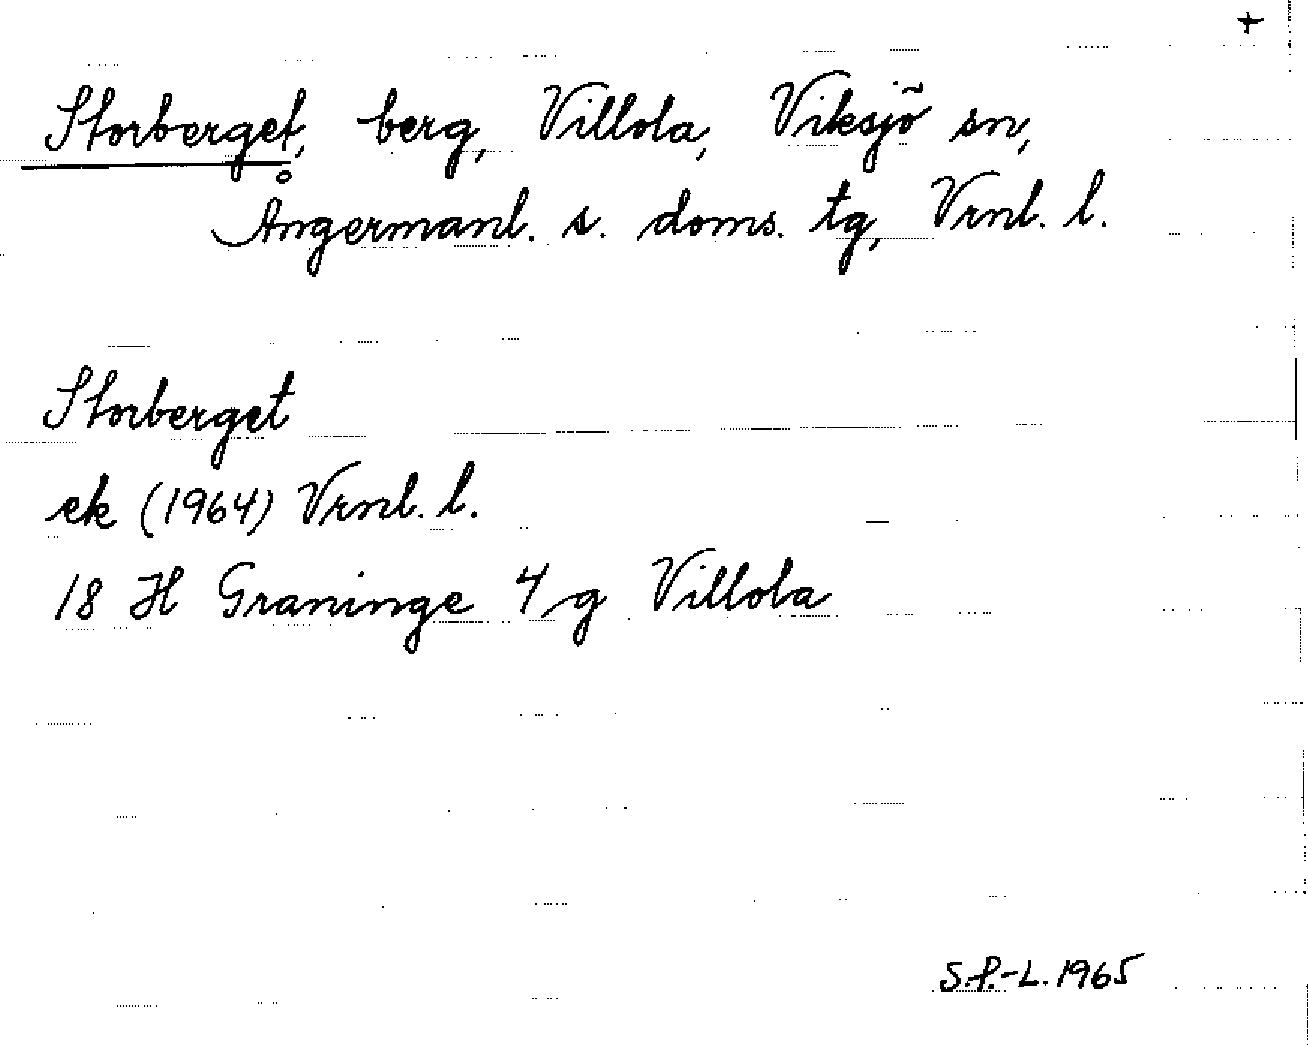 +
Storberget, berg, Villola, Viksjö sn,
Ångermanl. s. doms. tg, Vrnl. l.
Storberget
ek (1964) Vrnl. l.
18 H Graninge 4 g Villola
S.P.-L. 1965